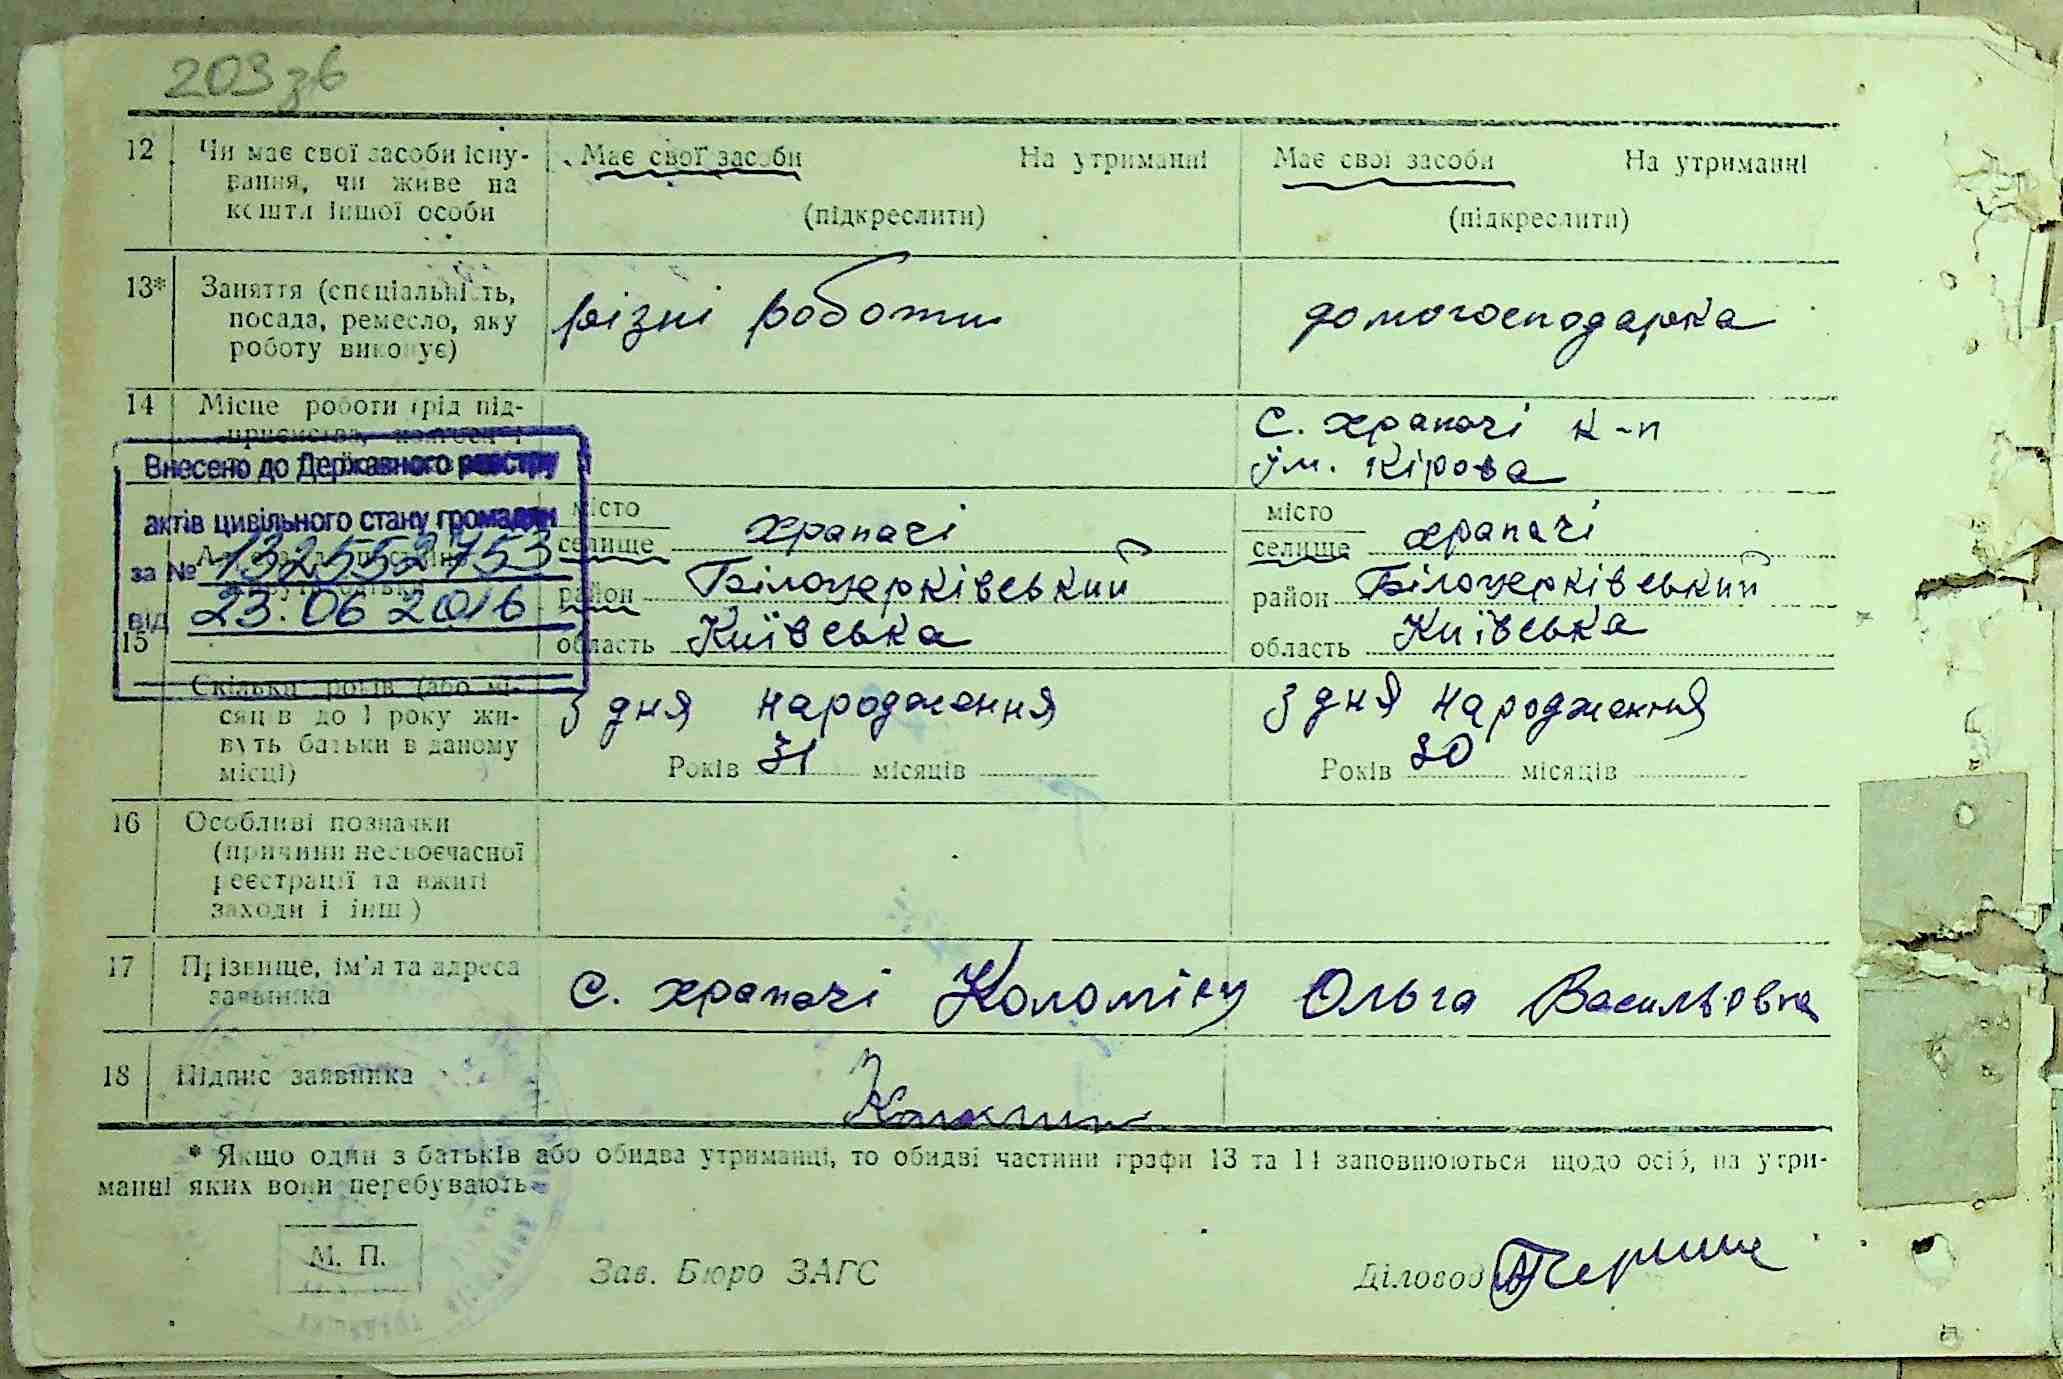 203зв
12 Чи має свої засоби існу- Має свої засоби На утриманні Має свої засоби На утриманні
вання, чи живе на
кошти іншої особи (підкреслити) (підкреслити)
13* Заняття (спеціальність,
посада, ремесло, яку різні роботи домогосподарка
роботу виконує)
14 Місце роботи (рід під- с. Храпачі к-п
приємства, ім. Кірова
Внесено до Державного реєстру
актів цивільного стану громадян
за № 132552753
від 23.06 2016
15
місто
селище Храпачі
район Білоцерківський
область Київська
місто
селище Храпачі
район Білоцерківський
область Київська
Скільки років (або мі- з дня народження з дня народження
сяців до 1 року жи-
вуть батьки в даному
місці) Років 31 місяців Років 30 місяців
16 Особливі позначки
(причини несвоєчасної
реєстрації та вжиті
заходи і інш.)
17 Прізвище, ім'я та адреса
заявника с. Храпачі Коломієц Ольга Васильовна
18 Підпис заявника
* Якщо один з батьків або обидва утриманці, то обидві частини графи 13 та 14 заповнюються щодо осіб, на утри-
манні яких вони перебувають
М. П. Зав. Бюро ЗАГС Діловод